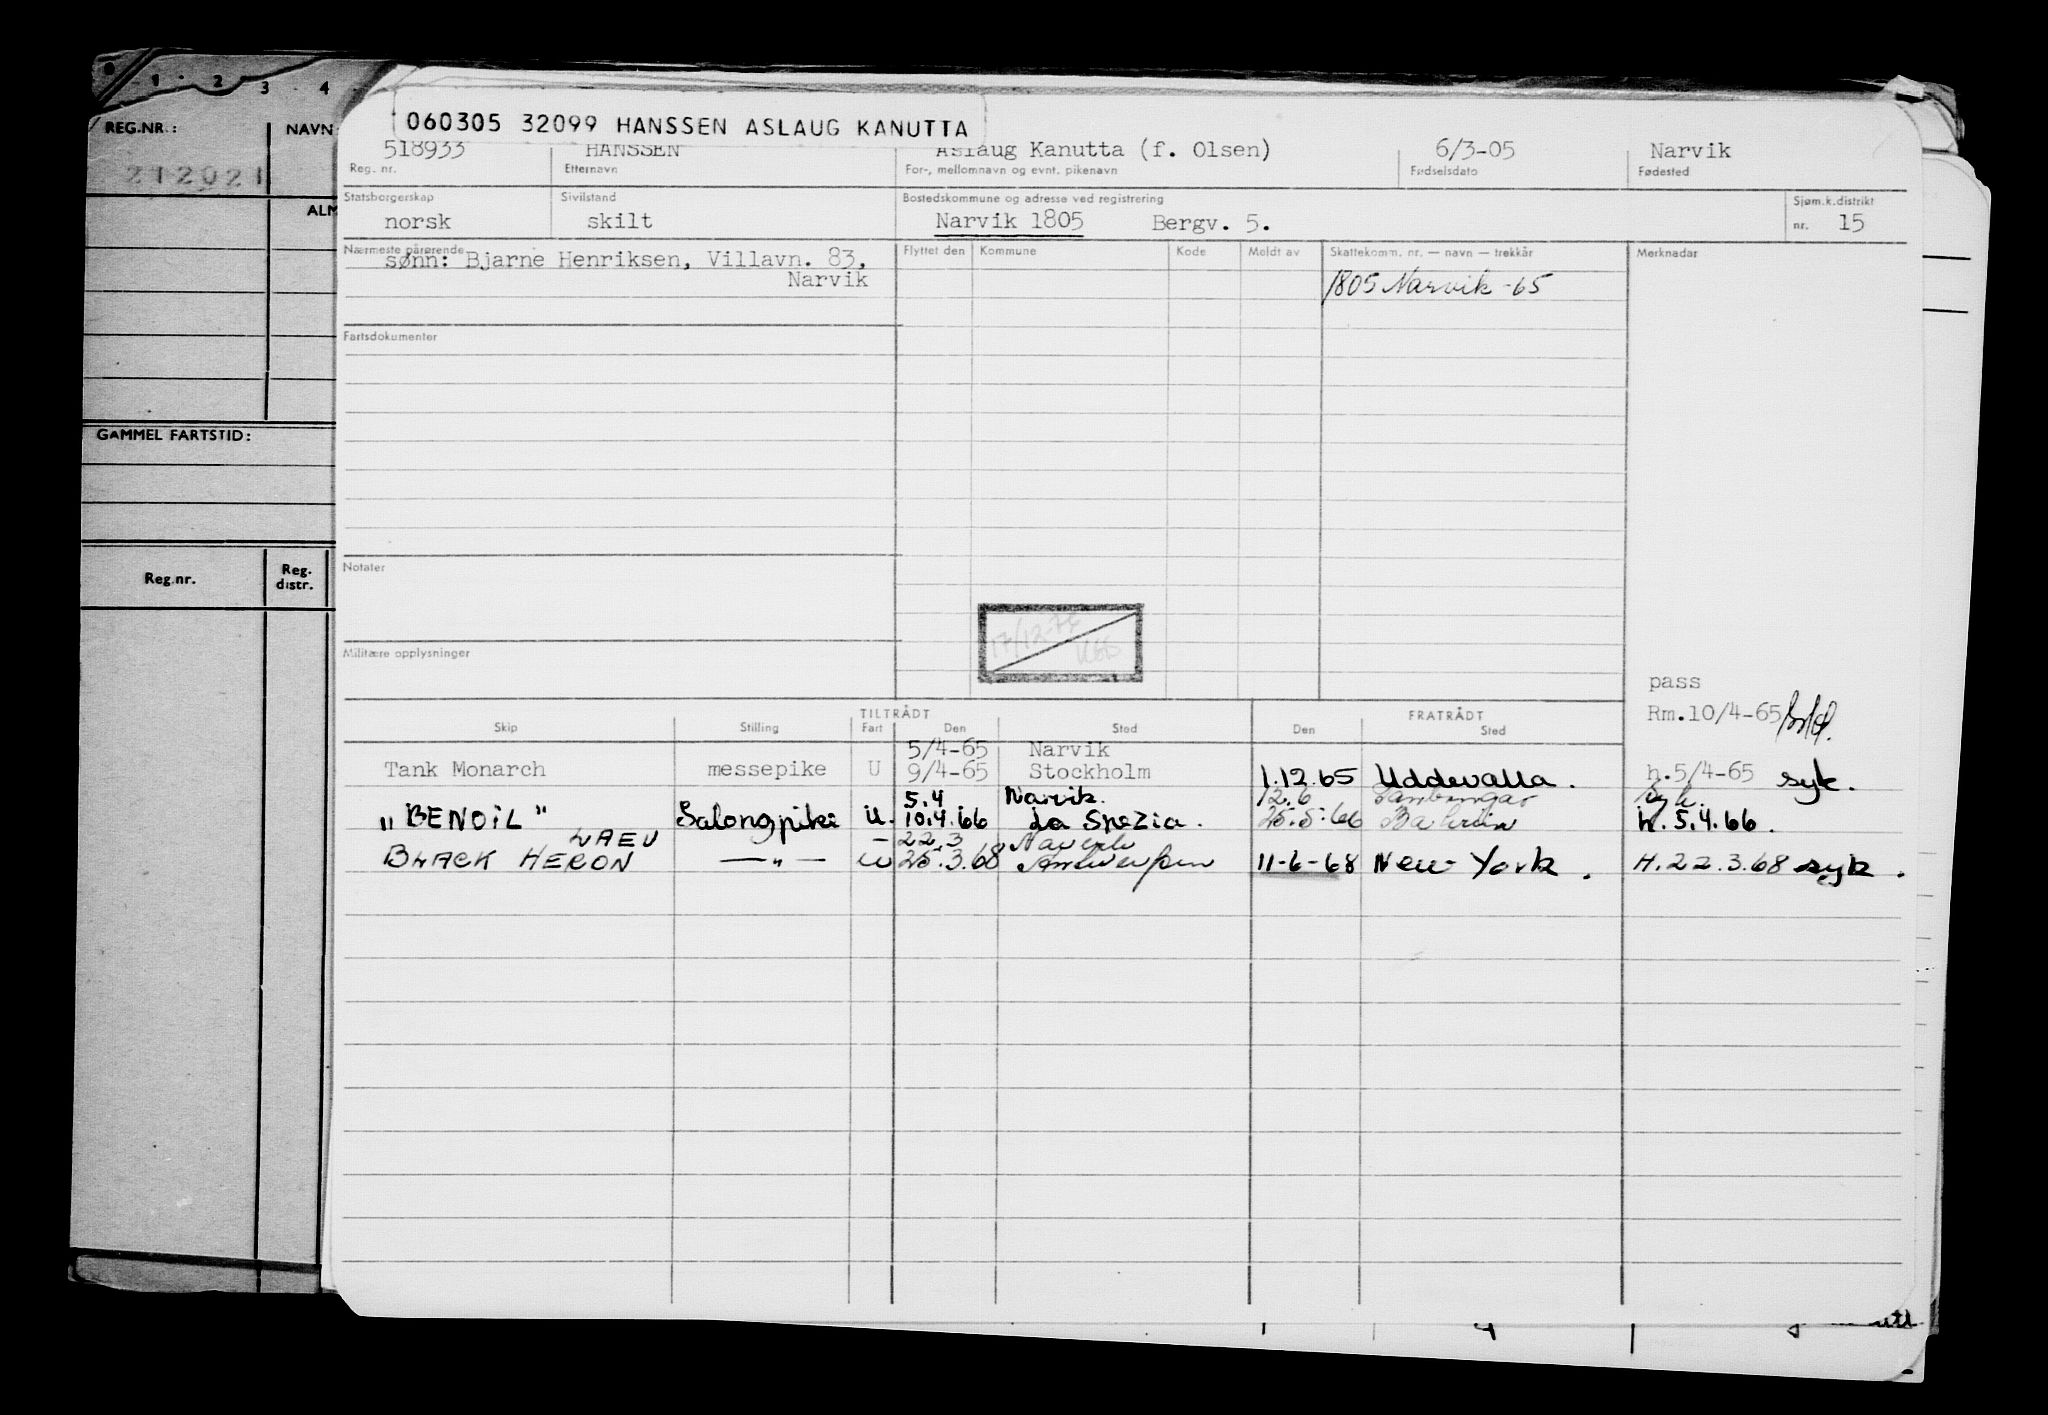 1 2 3 4
REG.NR.: NAVN
212021
ALM
GAMMEL FARTSTID:
Reg.nr. Reg. distr.
060305 32099 HANSSEN ASLAUG KANUTTA
518933 HANSSEN Aslaug Kanutta (f. Olsen) 6/3-05 Narvik
Reg. nr. Etternavn For-, mellomnavn og evnt. pikenavn Fødselsdato Fødested
Statsborgerskap Sivilstand Bostedskommune og adresse ved registrering Sjøm.k.distrikt
norsk skilt Narvik 1805 Bergv. 5. nr. 15
Nærmeste pårørende Flyttet den Kommune Kode Meldt av Skattekomm. nr. — navn — trekkår Merknadar
sønn: Bjarne Henriksen, Villavn. 83,
Narvik 1805 Narvik -65
Fartsdokumenter
Notater
17/12-75
Militære opplysninger
pass
Rm.10/4-65
TILTRÅDT FRATRÅDT
Skip Stilling Fart Den Sted Den Sted
5/4-65 Narvik
Tank Monarch messepike U 9/4-65 Stockholm 1.12.65 Uddevalla. h.5/4-65 syk.
5.4 Narvik. 12.6 syk.
"BENOIL" Salongpike U. 10.4.66 La Spezia. 25.5.66 Bahrein h.5.4.66.
LAEU — 22.3 Narvik
BLACK HERON —"— U 25.3.68 Antwerpen 11-6-68 New York. H.22.3.68 syk.